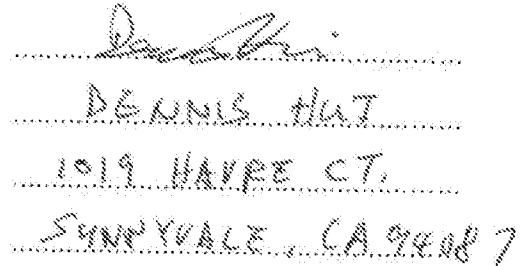 DENNIS HUI
1019 HAVRE CT.
SUNNYVALE, CA 94087